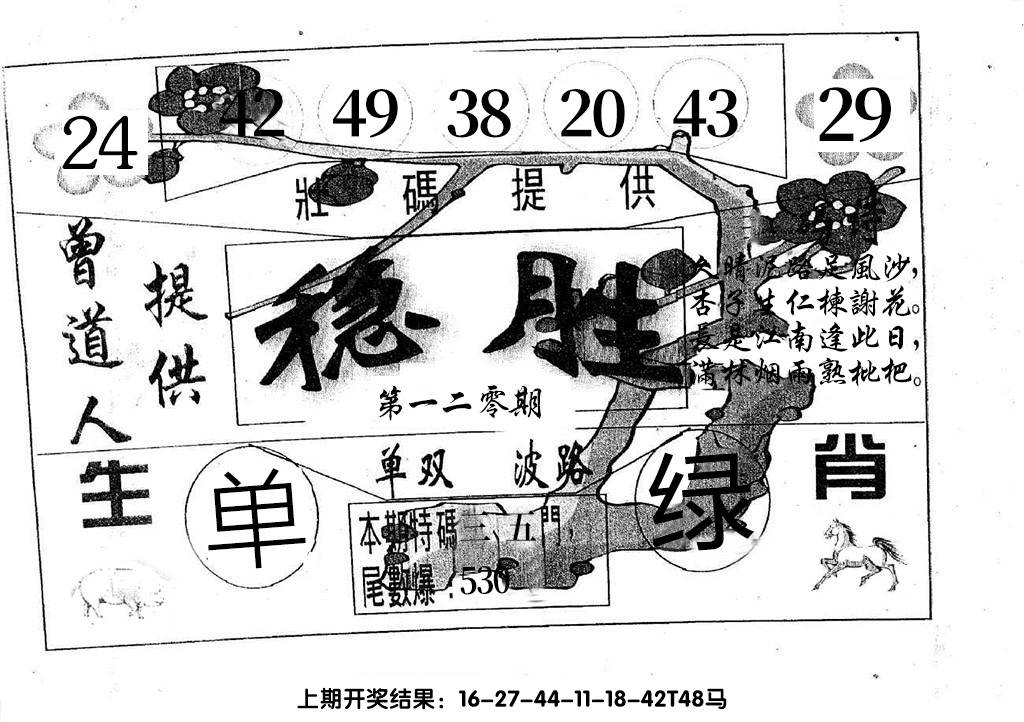 24 42 49 38 20 43 29
壯碼提供
特
曾道人
提供
稳胜
第一二零期
久晴泥路足風沙，
杏子生仁楝謝花。
長是江南逢此日，
滿林烟雨熟枇杷。
单双 波路
生肖
单
绿
本期特碼三、五門，
尾數爆：530
上期开奖结果：16-27-44-11-18-42T48马